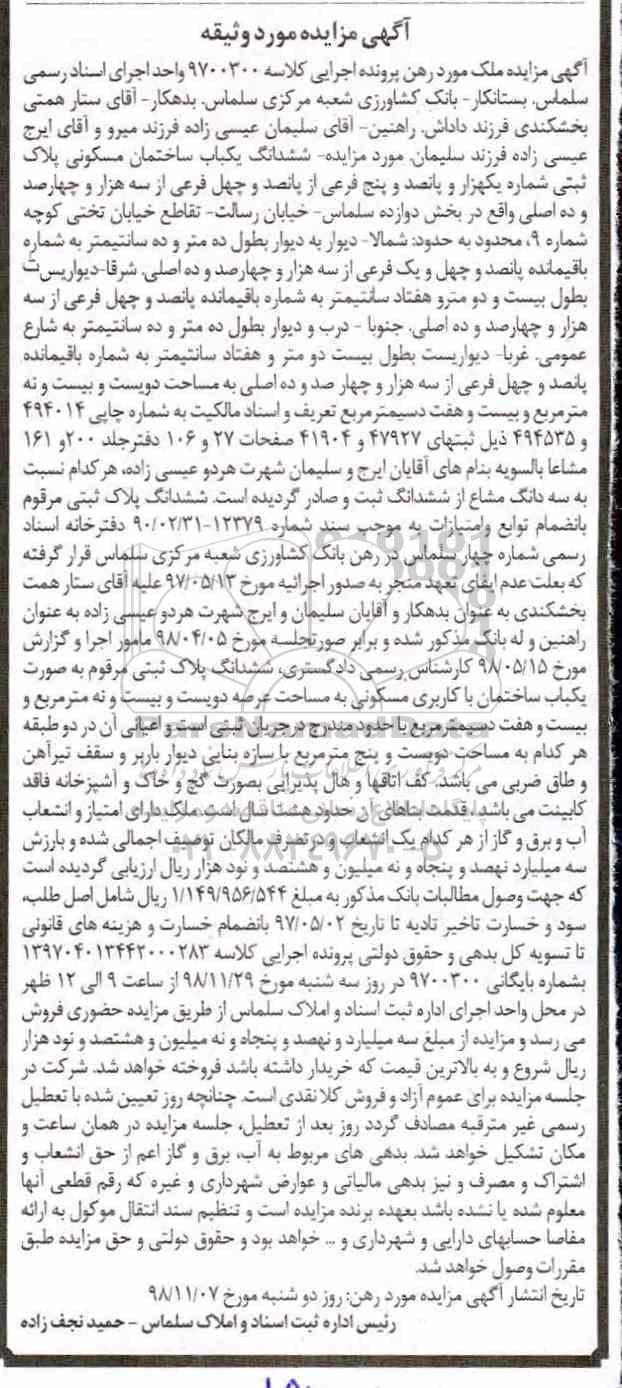 آگهی مزایده مورد وثیقه
آگهی مزایده ملک مورد رهن پرونده اجرایی کلاسه ۹۷۰۰۳۰۰ واحد اجرای اسناد رسمی
سلماس. بستانکار- بانک کشاورزی شعبه مرکزی سلماس. بدهکار- آقای ستار همتی
بخشکندی فرزند داداش. راهنین- آقای سلیمان عیسی زاده فرزند میرو و آقای ایرج
عیسی زاده فرزند سلیمان. مورد مزایده- ششدانگ یکباب ساختمان مسکونی پلاک
ثبتی شماره یکهزار و پانصد و پنج فرعی از پانصد و چهل فرعی از سه هزار و چهارصد
و ده اصلی واقع در بخش دوازده سلماس- خیابان رسالت- تقاطع خیابان تختی کوچه
شماره ۹، محدود به حدود: شمالا- دیوار به دیوار بطول ده متر و ده سانتیمتر به شماره
باقیمانده پانصد و چهل و یک فرعی از سه هزار و چهارصد و ده اصلی. شرقا-دیواریست
بطول بیست و دو مترو هفتاد سانتیمتر به شماره باقیمانده پانصد و چهل فرعی از سه
هزار و چهارصد و ده اصلی. جنوبا - درب و دیوار بطول ده متر و ده سانتیمتر به شارع
عمومی. غربا- دیواریست بطول بیست دو متر و هفتاد سانتیمتر به شماره باقیمانده
پانصد و چهل فرعی از سه هزار و چهار صد و ده اصلی به مساحت دویست و بیست و نه
مترمربع و بیست و هفت دسیمترمربع تعریف و اسناد مالکیت به شماره چاپی ۴۹۴۰۱۴
و ۴۹۴۵۳۵ ذیل ثبتهای ۴۷۹۲۷ و ۴۱۹۰۴ صفحات ۲۷ و ۱۰۶ دفترجلد ۲۰۰و ۱۶۱
مشاعا بالسویه بنام های آقایان ایرج و سلیمان شهرت هردو عیسی زاده، هرکدام نسبت
به سه دانگ مشاع از ششدانگ ثبت و صادر گردیده است. ششدانگ پلاک ثبتی مرقوم
بانضمام توابع وامتیازات به موجب سند شماره ۱۲۳۷۹-۹۰/۰۲/۳۱ دفترخانه اسناد
رسمی شماره چهار سلماس در رهن بانک کشاورزی شعبه مرکزی سلماس قرار گرفته
که بعلت عدم ایفای تعهد منجر به صدور اجرائیه مورخ ۹۷/۰۵/۱۳ علیه آقای ستار همت
بخشکندی به عنوان بدهکار و آقایان سلیمان و ایرج شهرت هردو عیسی زاده به عنوان
راهنین و له بانک مذکور شده و برابر صورتجلسه مورخ ۹۸/۰۴/۰۵ مامور اجرا و گزارش
مورخ ۹۸/۰۵/۱۵ کارشناس رسمی دادگستری، ششدانگ پلاک ثبتی مرقوم به صورت
یکباب ساختمان با کاربری مسکونی به مساحت عرصه دویست و بیست و نه مترمربع و
بیست و هفت دسیمتر مربع با حدود مندرج در جریان ثبتی است و اعیانی آن در دو طبقه
هر کدام به مساحت دویست و پنج مترمربع با سازه بنایی دیوار باربر و سقف تیرآهن
و طاق ضربی می باشد. کف اتاقها و هال پذیرایی بصورت گچ و خاک و آشپزخانه فاقد
کابینت می باشد. قدمت بناهای آن حدود هشت سال است. ملک دارای امتیاز و انشعاب
آب و برق و گاز از هر کدام یک انشعاب و در تصرف مالکان توصیف اجمالی شده و بارزش
سه میلیارد نهصد و پنجاه و نه میلیون و هشتصد و نود هزار ریال ارزیابی گردیده است
که جهت وصول مطالبات بانک مذکور به مبلغ ۱/۱۴۹/۹۵۶/۵۴۴ ریال شامل اصل طلب،
سود و خسارت تاخیر تادیه تا تاریخ ۹۷/۰۵/۰۲ بانضمام خسارت و هزینه های قانونی
تا تسویه کل بدهی و حقوق دولتی پرونده اجرایی کلاسه ۱۳۹۷۰۴۰۱۳۴۴۲۰۰۰۲۸۳
بشماره بایگانی ۹۷۰۰۳۰۰ در روز سه شنبه مورخ ۹۸/۱۱/۲۹ از ساعت ۹ الی ۱۲ ظهر
در محل واحد اجرای اداره ثبت اسناد و املاک سلماس از طریق مزایده حضوری فروش
می رسد و مزایده از مبلغ سه میلیارد و نهصد و پنجاه و نه میلیون و هشتصد و نود هزار
ریال شروع و به بالاترین قیمت که خریدار داشته باشد فروخته خواهد شد. شرکت در
جلسه مزایده برای عموم آزاد و فروش کلا نقدی است. چنانچه روز تعیین شده با تعطیل
رسمی غیر مترقبه مصادف گردد روز بعد از تعطیل، جلسه مزایده در همان ساعت و
مکان تشکیل خواهد شد. بدهی های مربوط به آب، برق و گاز اعم از حق انشعاب و
اشتراک و مصرف و نیز بدهی مالیاتی و عوارض شهرداری و غیره که رقم قطعی آنها
معلوم شده یا نشده باشد بعهده برنده مزایده است و تنظیم سند انتقال موکول به ارائه
مفاصا حسابهای دارایی و شهرداری و ... خواهد بود و حقوق دولتی و حق مزایده طبق
مقررات وصول خواهد شد.
تاریخ انتشار آگهی مزایده مورد رهن: روز دو شنبه مورخ ۹۸/۱۱/۰۷
رئیس اداره ثبت اسناد و املاک سلماس - حمید نجف زاده